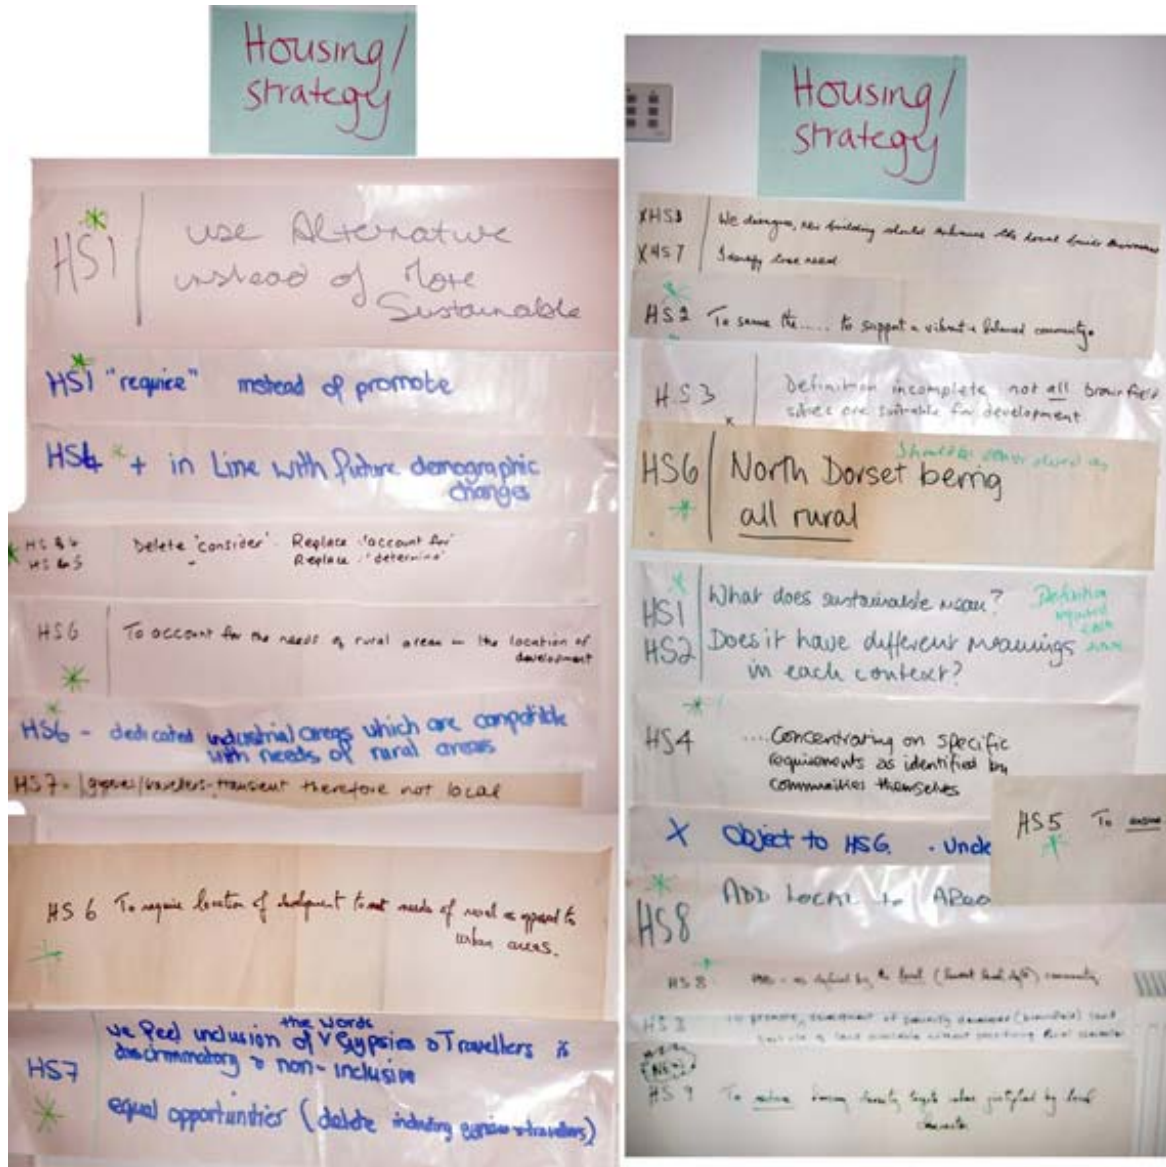 Housing/
strategy
HS1 use Alternative
instead of More
Sustainable
HS1 "require" instead of promote
HS4 + in Line with future demographic
changes
HS 4 Delete 'consider'. Replace 'account for'
HS 5 Replace 'determine'
HS6 To account for the needs of rural areas in the location of
development
HS6 - dedicated industrial areas which are compatible
with needs of rural areas
HS7 - gypsies/travellers - transient therefore not local
HS 6 To require location of development to meet needs of rural as opposed to
urban areas.
the words
we feel inclusion of v Gypsies & Travellers is
HS7 discriminatory & non-inclusive
equal opportunities (delete including gypsies & travellers)
Housing/
strategy
XHS8 We disagree, new building should enhance the local
XHS7 Identify local need
HS2 To ensure the..... to support a vibrant & balanced community.
H.S 3 Definition incomplete, not all brownfield
sites are suitable for development
HS6 North Dorset being
all rural
HS1 What does sustainable mean? Definition
required
each
HS2 Does it have different meanings
in each context?
HS4 ....Concentrating on specific
requirements as identified by
communities themselves
X Object to HS6. Unde
HS5 To
HS8 ADD LOCAL to
HS 8 as defined by the local community
HS 3 To promote
HS 9 To housing density targets when justified by local
character